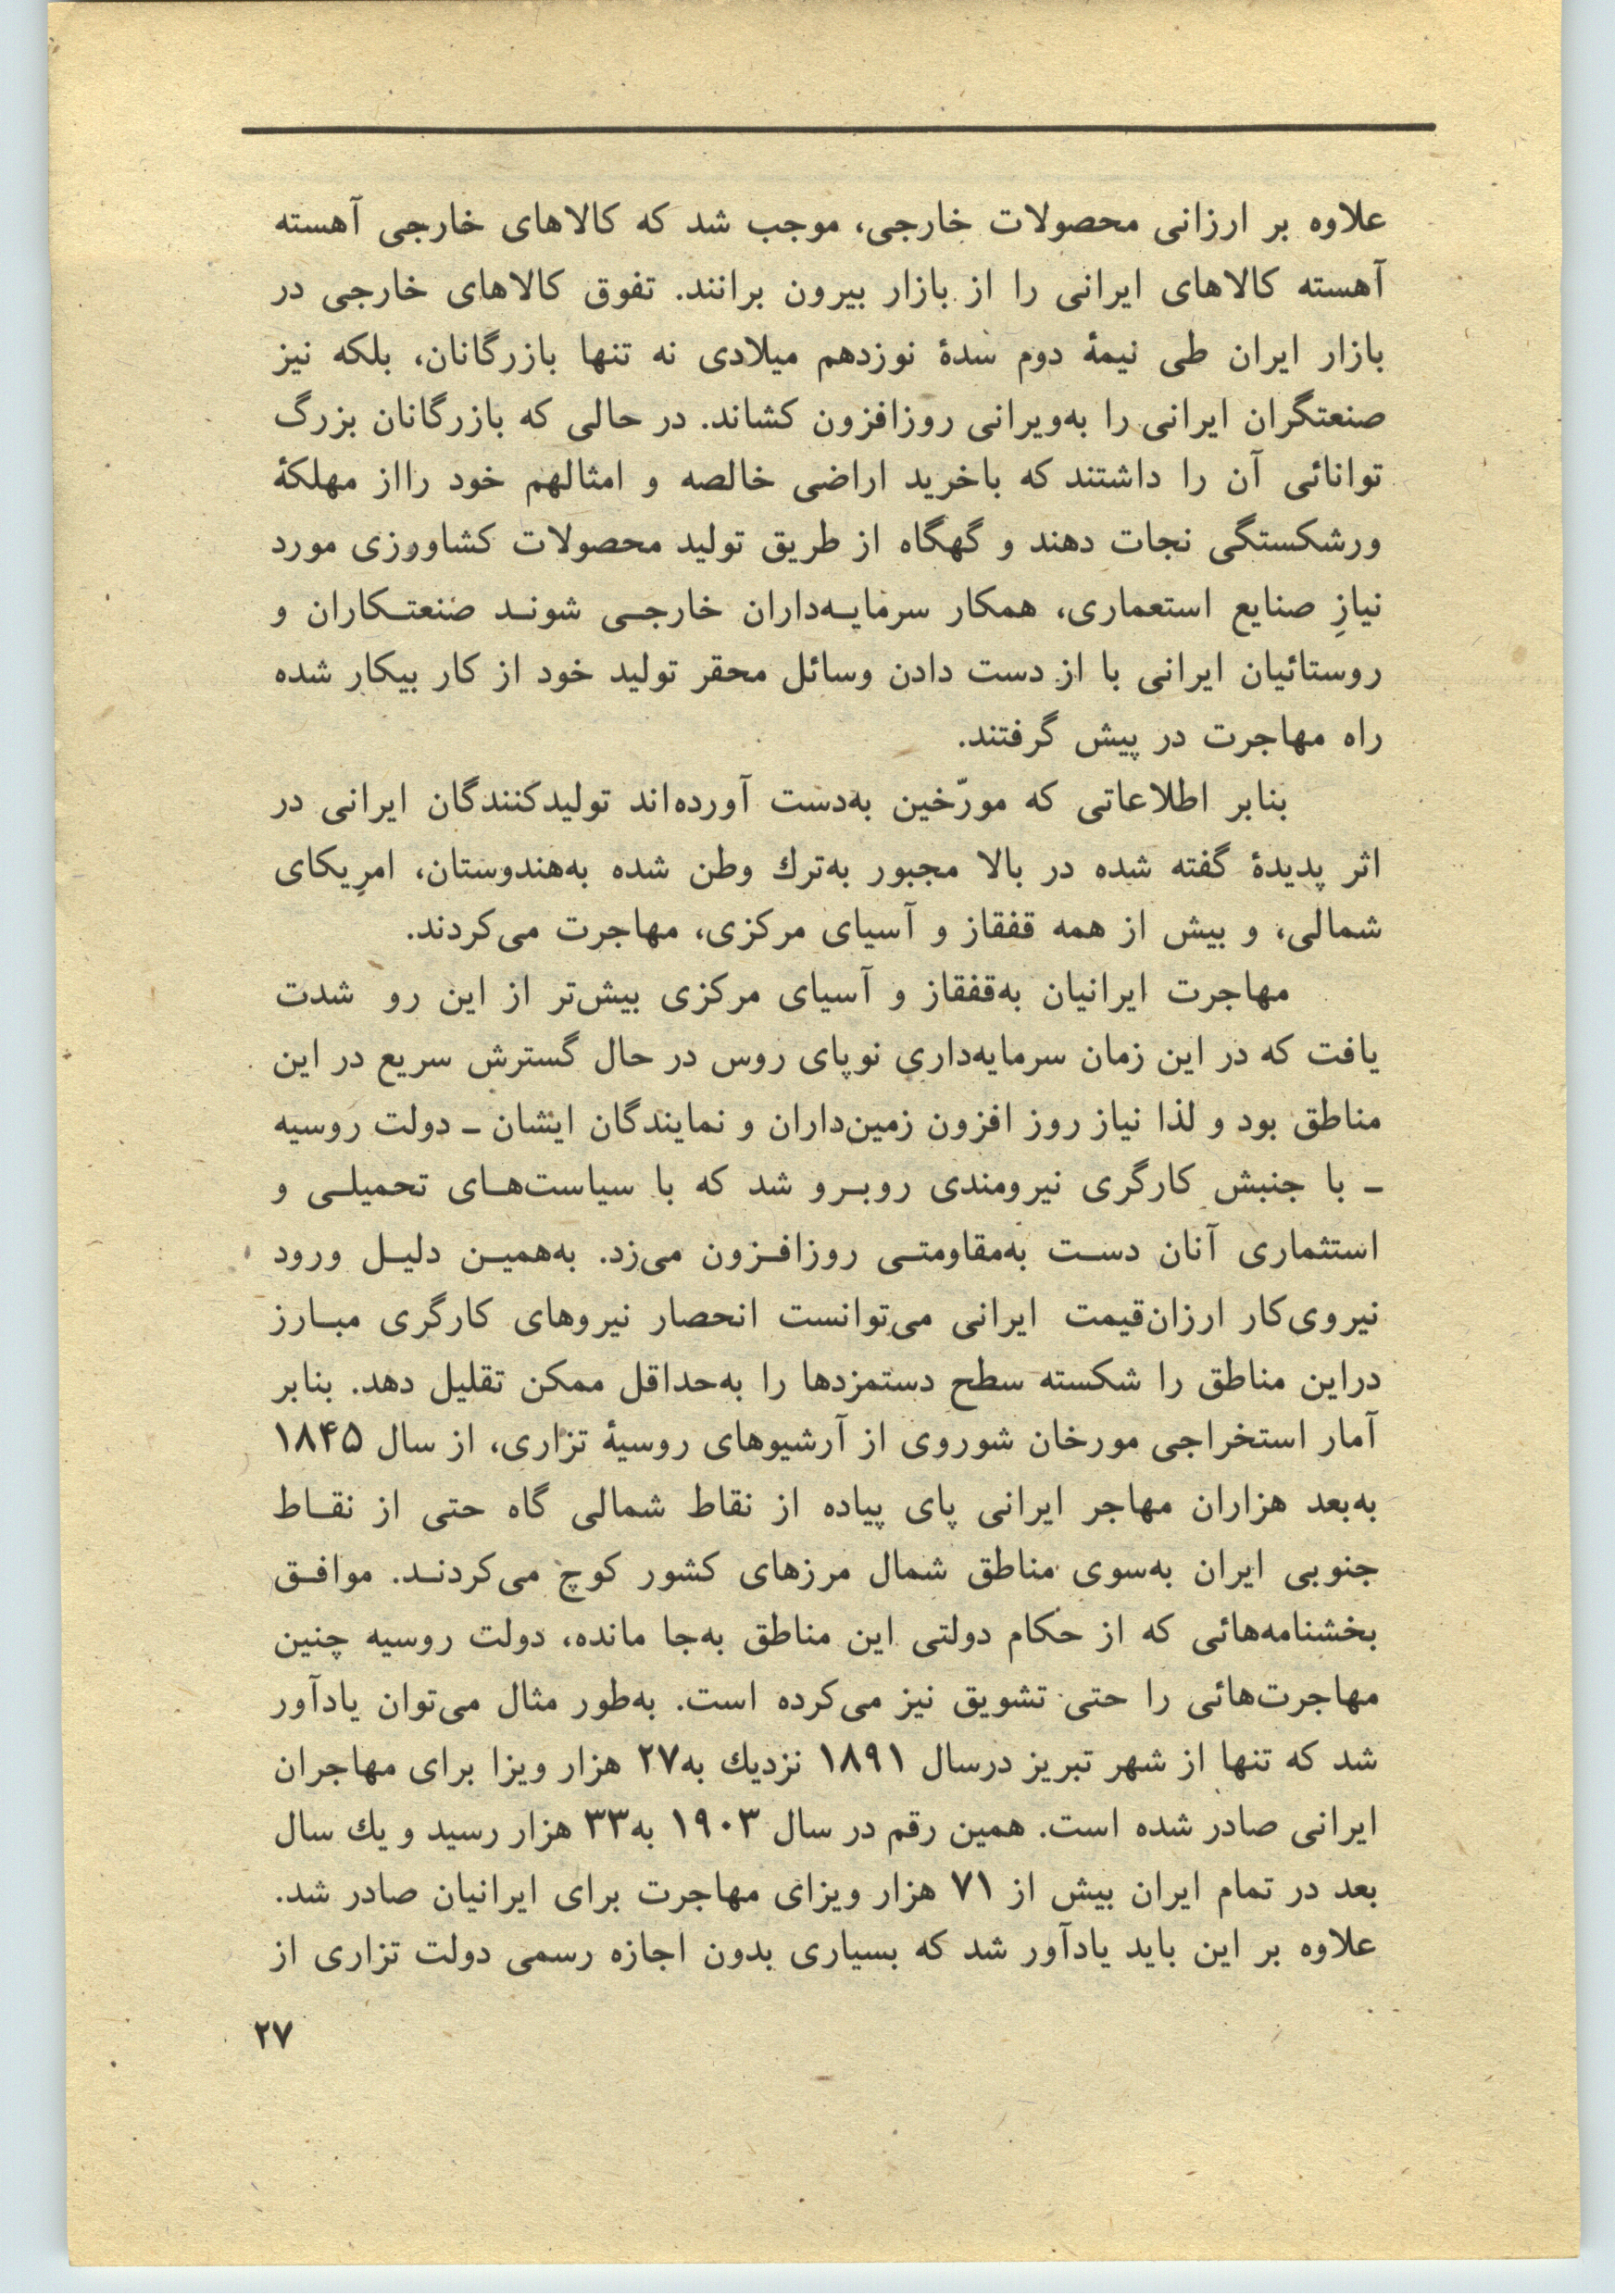 علاوه بر ارزانی محصولات خارجی، موجب شد که کالاهای خارجی آهسته
آهسته کالاهای ایرانی را از بازار بیرون برانند. تفوق کالاهای خارجی در
بازار ایران طی نیمهٔ دوم سدهٔ نوزدهم میلادی نه تنها بازرگانان، بلکه نیز
صنعتگران ایرانی را به‌ویرانی روزافزون کشاند. در حالی که بازرگانان بزرگ
توانائی آن را داشتند که باخرید اراضی خالصه و امثالهم خود رااز مهلکهٔ
ورشکستگی نجات دهند و گهگاه از طریق تولید محصولات کشاورزی مورد
نیازِ صنایع استعماری، همکار سرمایـه‌داران خارجـی شونـد صنعتـکاران و
روستائیان ایرانی با از دست دادن وسائل محقر تولید خود از کار بیکار شده
راه مهاجرت در پیش گرفتند.
بنابر اطلاعاتی که مورّخین به‌دست آورده‌اند تولیدکنندگان ایرانی در
اثر پدیدهٔ گفته شده در بالا مجبور به‌ترك وطن شده به‌هندوستان، امریکای
شمالی، و بیش از همه قفقاز و آسیای مرکزی، مهاجرت می‌کردند.
مهاجرت ایرانیان به‌قفقاز و آسیای مرکزی بیش‌تر از این رو شدت
یافت که در این زمان سرمایه‌داری نوپای روس در حال گسترش سریع در این
مناطق بود و لذا نیاز روز افزون زمین‌داران و نمایندگان ایشان ـ دولت روسیه
ـ با جنبش کارگری نیرومندی روبـرو شد که با سیاست‌هـای تحمیلـی و
استثماری آنان دسـت به‌مقاومتـی روزافـزون می‌زد. به‌همیـن دلیـل ورود
نیروی‌کار ارزان‌قیمت ایرانی می‌توانست انحصار نیروهای کارگری مبـارز
دراین مناطق را شکسته سطح دستمزدها را به‌حداقل ممکن تقلیل دهد. بنابر
آمار استخراجی مورخان شوروی از آرشیوهای روسیهٔ تزاری، از سال ۱۸۴۵
به‌بعد هزاران مهاجر ایرانی پای پیاده از نقاط شمالی گاه حتی از نقـاط
جنوبی ایران به‌سوی مناطق شمال مرزهای کشور کوچ می‌کردنـد. موافـق
بخشنامه‌هائی که از حکام دولتی این مناطق به‌جا مانده، دولت روسیه چنین
مهاجرت‌هائی را حتی تشویق نیز می‌کرده است. به‌طور مثال می‌توان یادآور
شد که تنها از شهر تبریز درسال ۱۸۹۱ نزدیك به۲۷ هزار ویزا برای مهاجران
ایرانی صادر شده است. همین رقم در سال ۱۹۰۳ به۳۳ هزار رسید و یك سال
بعد در تمام ایران بیش از ۷۱ هزار ویزای مهاجرت برای ایرانیان صادر شد.
علاوه بر این باید یادآور شد که بسیاری بدون اجازه رسمی دولت تزاری از
۲۷